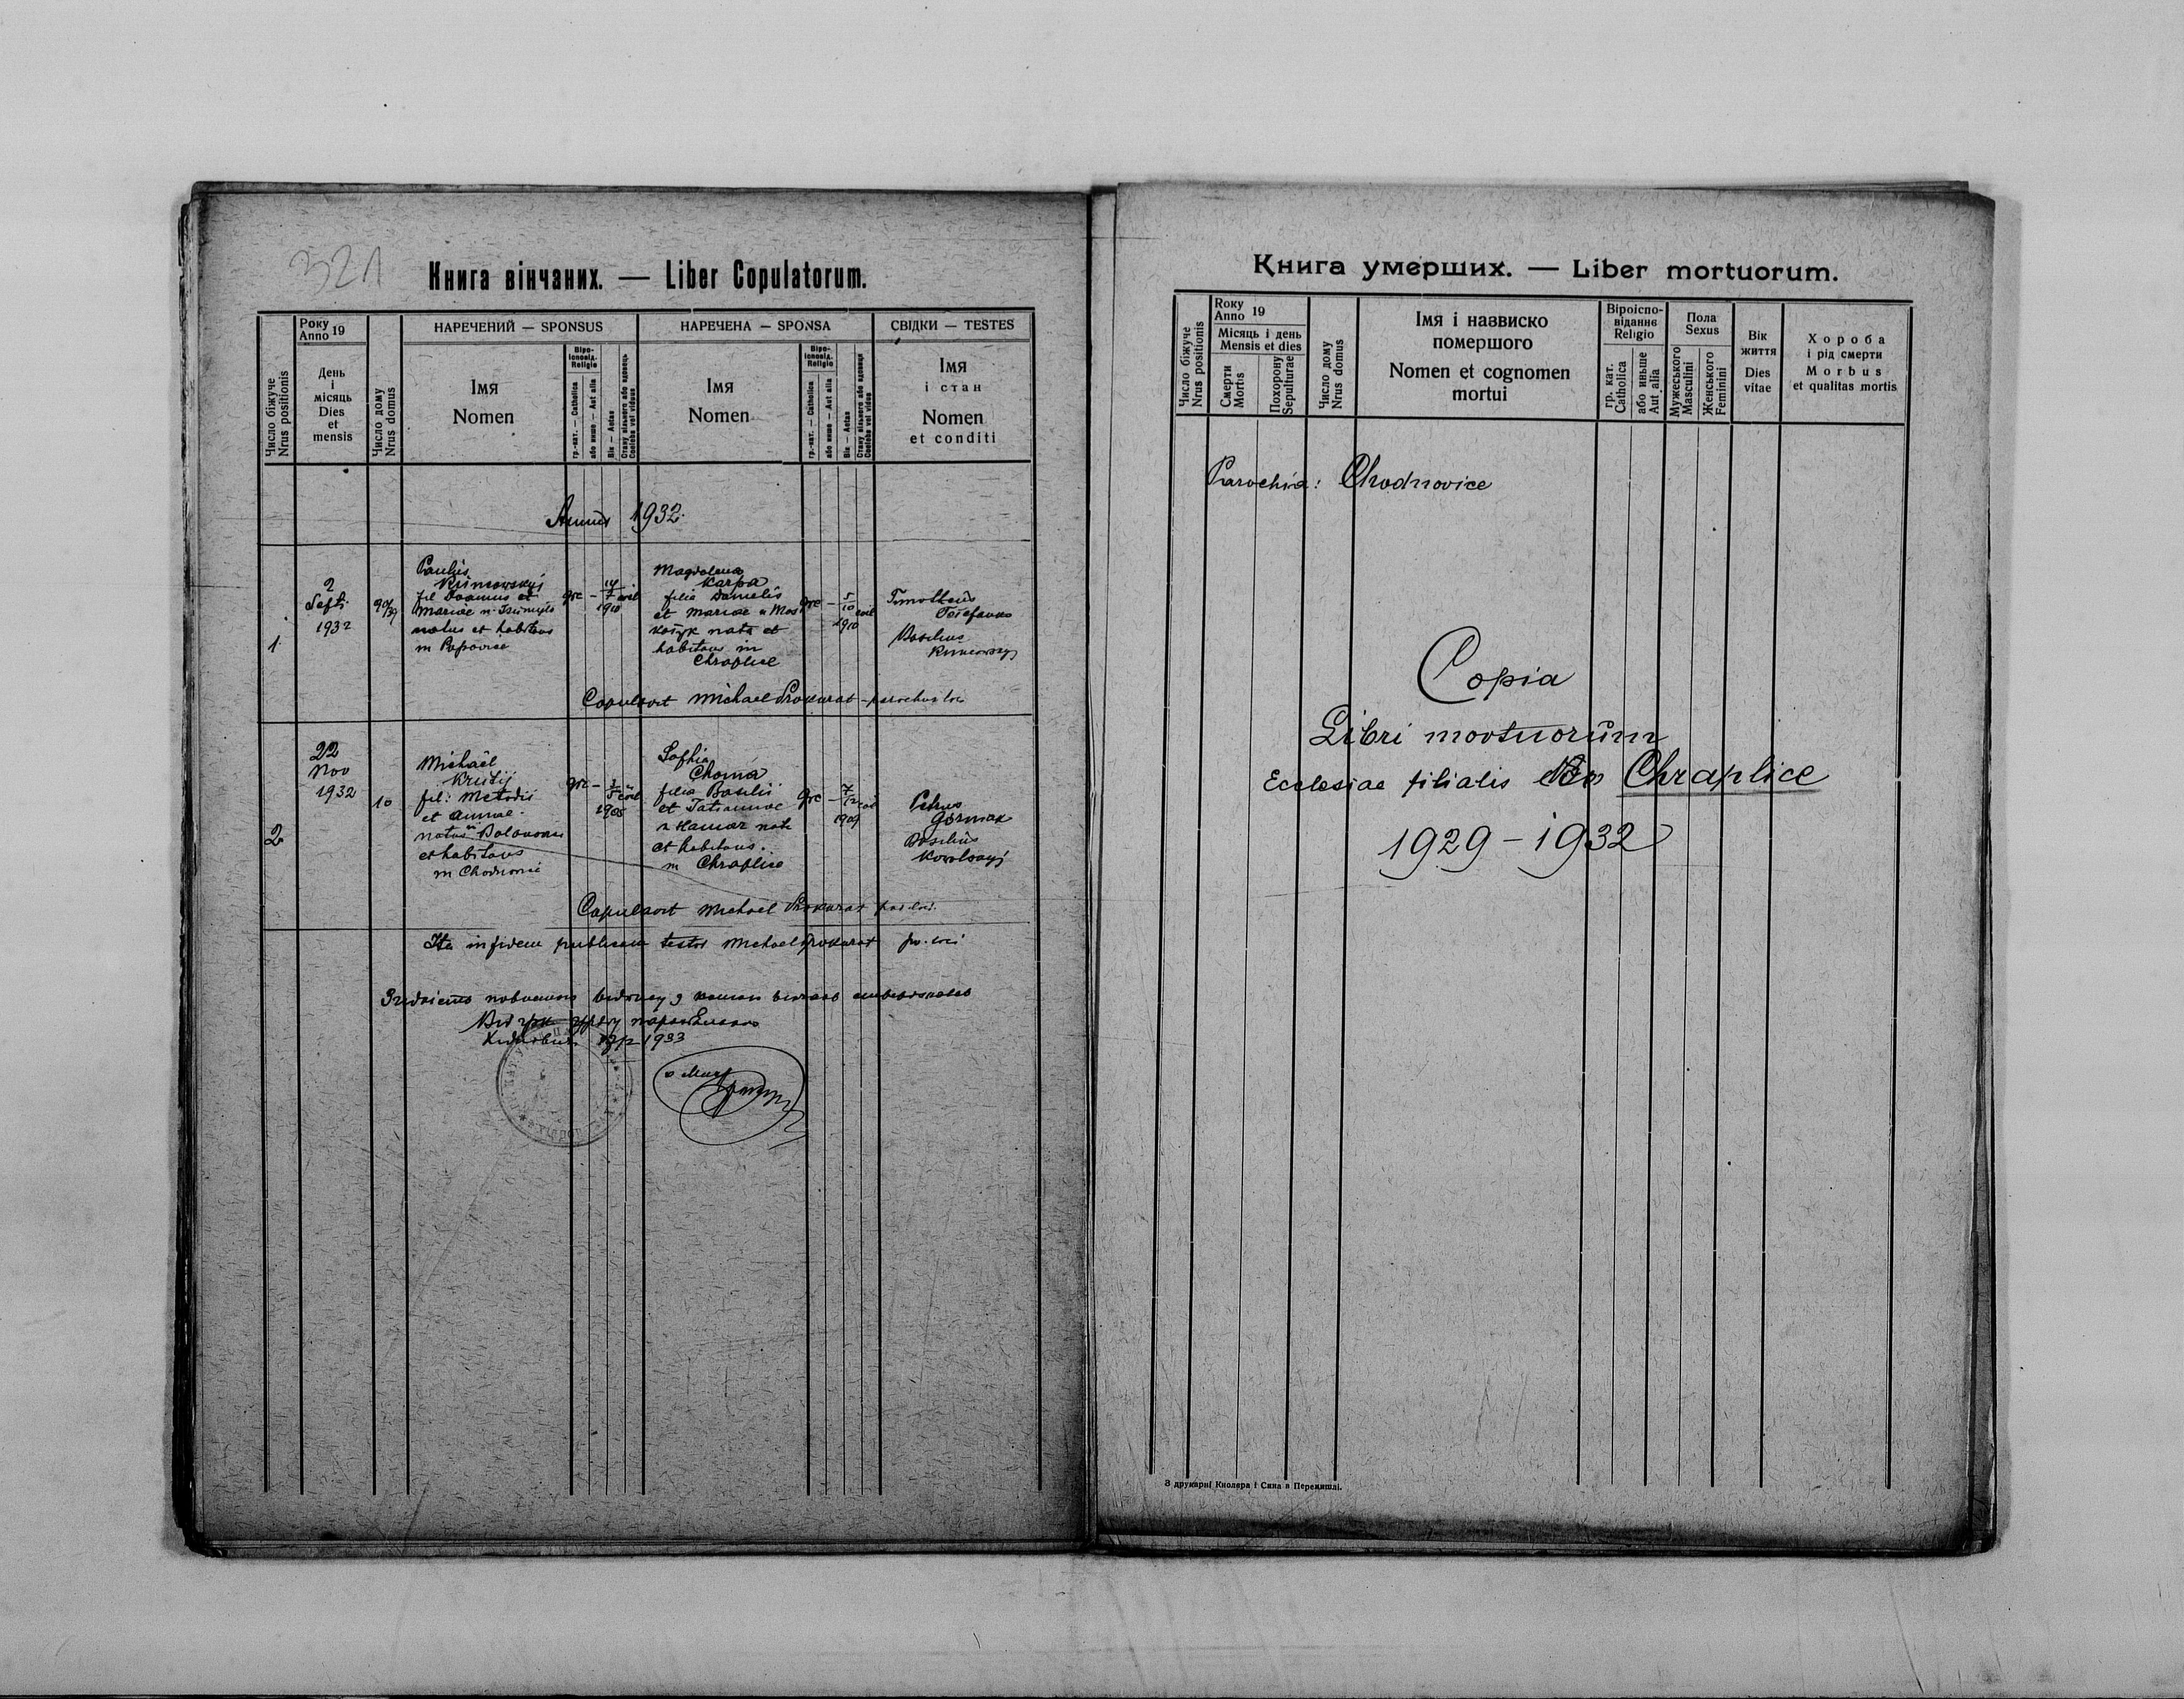 321
Книга вінчаних. — Liber Copulatorum.
Число біжуче
Nrus positionis
Року
Anno 19
День
і
місяць
Dies
et
mensis
Число дому
Nrus domus
НАРЕЧЕНИЙ — SPONSUS
Імя
Nomen
Віро-
ісповід.
Religio
гр.-кат. — Catholica
або инше — Aut alia
Вік — Aetas
Стану вільного або вдовець
НАРЕЧЕНА — SPONSA
Імя
Nomen
Віро-
ісповід.
Religio
гр.-кат. — Catholica
або инше — Aut alia
Вік — Aetas
СВІДКИ — TESTES
Імя
і стан
Nomen
et conditi
Annus 1932.
1
2
Septi
1932
Paulus
fil Joannis et
Mariae n.
natus et habitans
in Popovice
grc — 14/7 1910
Magdalena
Karpa
filia Danielis
et Mariae n Mos
kożyk nata et
habitans in
Chraplice
grc — 5/10 1910
Timotheus
Basilius
Copulavit Michael Prokurat — parochus loci
2
22
Nov
1932
10
Michaël
Krutij
fil: Metodii
et Annae.
natus in
et habitans
in Chodnovice
grc — 1905
Sophia
Choma
filia Basilii
et Tatiannae
n Hamar nata
et habitans.
in Chraplice
grc — 7/12 1909
Petrus
Gormak
Basilius
Copulavit Michael Prokurat par loci.
Ita in fidem publicam testor Michael Prokurat par. loci
1933
Книга умерших. — Liber mortuorum.
Число біжуче
Nrus positionis
Року
Anno 19
Місяць і день
Mensis et dies
Смерти
Mortis
Похорону
Sepulturae
Число дому
Nrus domus
Імя і назвиско
помершого
Nomen et cognomen
mortui
Віроіспо-
віданнє
Religio
гр. кат.
Catholica
або иньше
Aut alia
Пола
Sexus
Мужеського
Masculini
Женського
Feminini
Вік
життя
Dies
vitae
Хороба
і рід смерти
Morbus
et qualitas mortis
Parochia: Chodnovice
Copia
Libri mortuorum
Ecclesiae filialis Chraplice
1929 – 1932
З друкарні Кнолера і Сина в Перемишлі.